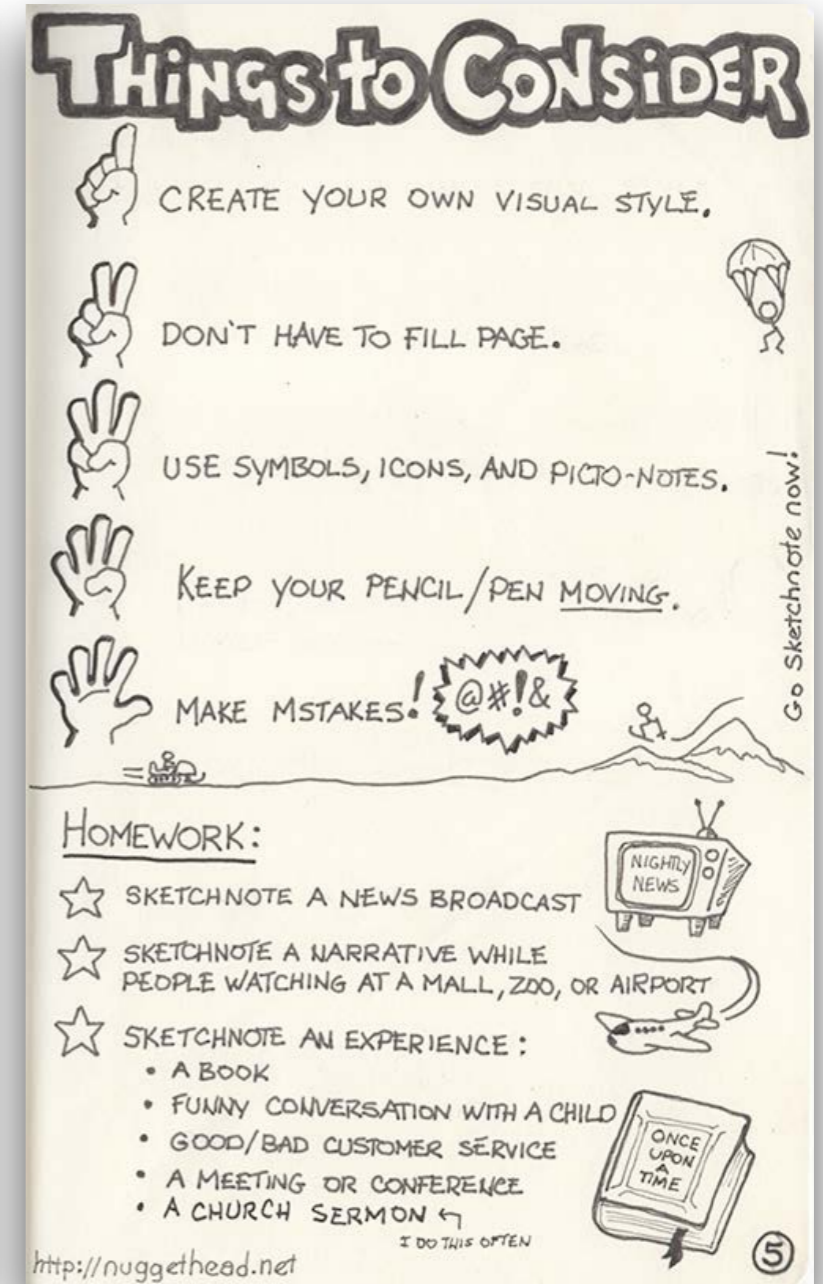 THiNGS to CONSiDER
CREATE YOUR OWN VISUAL STYLE.
DON'T HAVE TO FILL PAGE.
USE SYMBOLS, ICONS, AND PICTO-NOTES.
KEEP YOUR PENCIL/PEN MOVING.
MAKE MSTAKES!
@#!&
Go Sketchnote now!
HOMEWORK:
SKETCHNOTE A NEWS BROADCAST
NIGHTLY
NEWS
SKETCHNOTE A NARRATIVE WHILE
PEOPLE WATCHING AT A MALL, ZOO, OR AIRPORT
SKETCHNOTE AN EXPERIENCE:
• A BOOK
• FUNNY CONVERSATION WITH A CHILD
• GOOD/BAD CUSTOMER SERVICE
• A MEETING OR CONFERENCE
• A CHURCH SERMON
I DO THIS OFTEN
ONCE
UPON
A
TIME
http://nuggethead.net
5